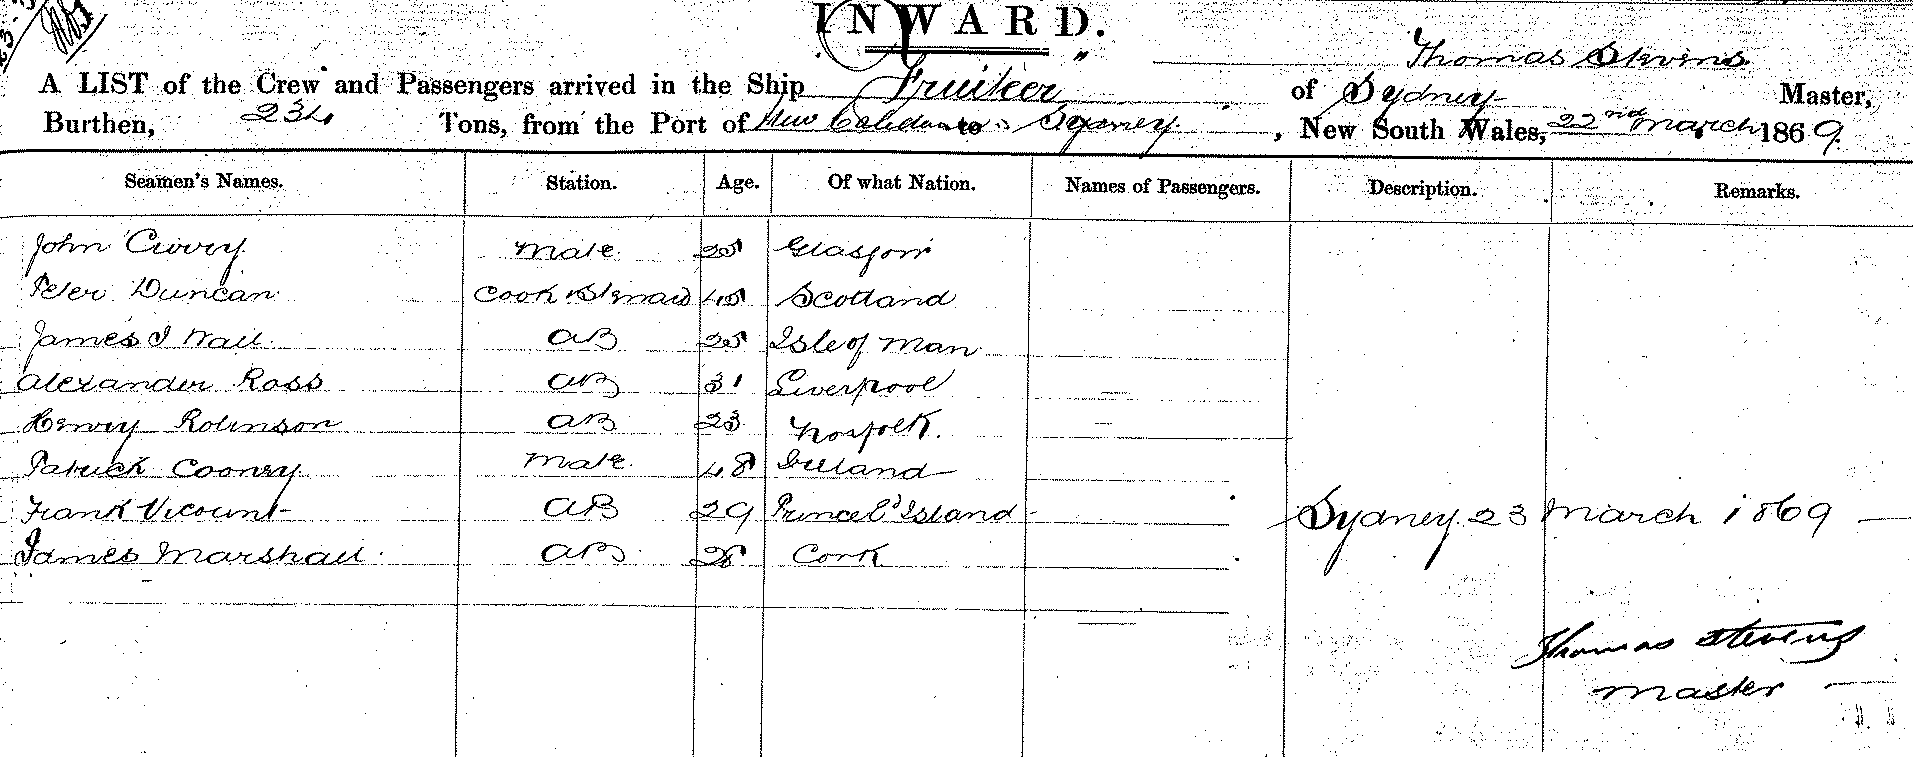 INWARD.
Thomas Stevens
A LIST of the Crew and Passengers arrived in the Ship Fruiteer of Sydney Master,
Burthen, 234 Tons, from the Port of New Caledonia to Sydney, New South Wales, 22nd March 1869.
Seamen's Names. Station. Age. Of what Nation. Names of Passengers. Description. Remarks.
John Curry Mate 25 Glasgow
Peter Duncan Cook & Steward 45 Scotland
James I Wall AB 25 Isle of Man
Alexander Ross AB 31 Liverpool
Henry Robinson AB 23 Norfolk.
Patrick Cooney Mate 48 Ireland
Frank Vicount AB 29 Island
Sydney 23 March 1869
James Marshall AB 28 Cork
Thomas Stevens
Master